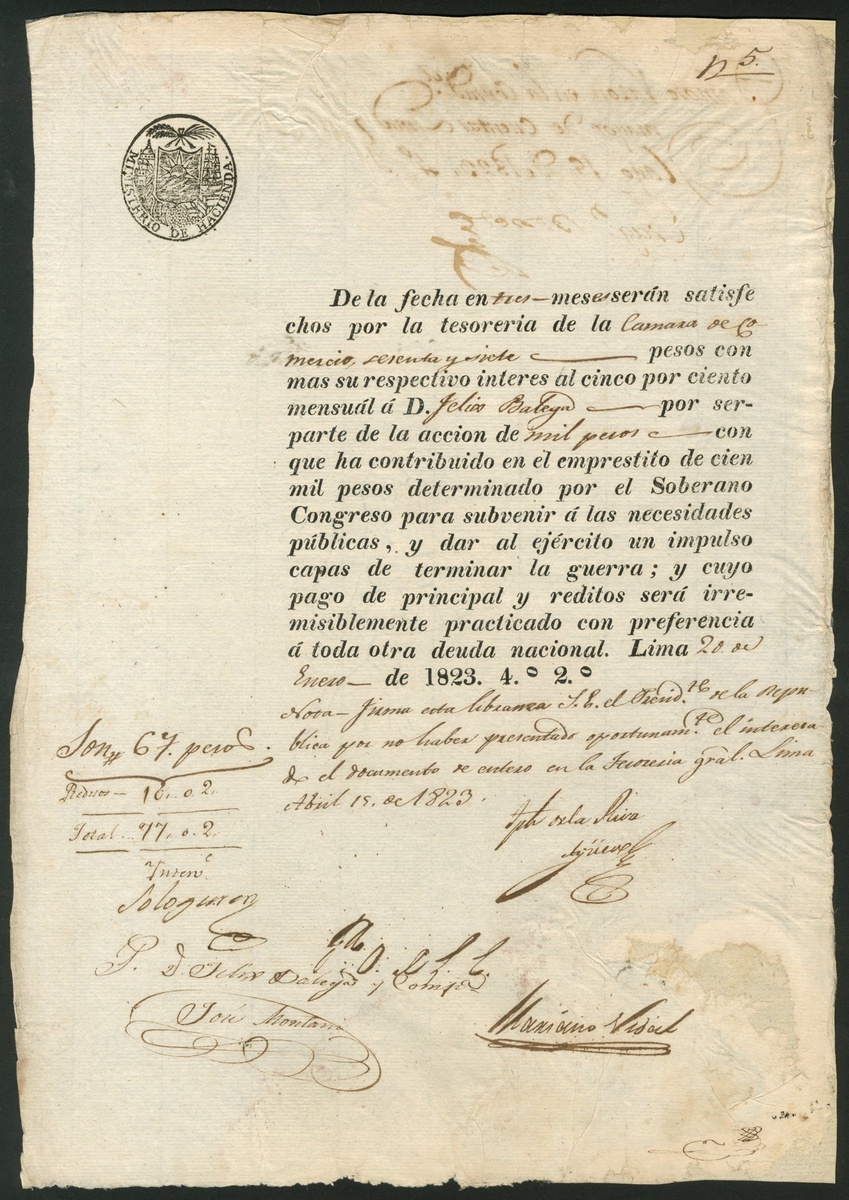 n 5.
MINISTERIO DE HACIENDA.
De la fecha en tres meses serán satisfe
chos por la tesoreria de la Camara de Co
mercio, sesenta y siete pesos con
mas su respectivo interes al cinco por ciento
mensuál á D. Felix Balega por ser-
parte de la accion de mil pesos con
que ha contribuido en el emprestito de cien
mil pesos determinado por el Soberano
Congreso para subvenir á las necesidades
públicas, y dar al ejército un impulso
capas de terminar la guerra; y cuyo
pago de principal y reditos será irre-
misiblemente practicado con preferencia
á toda otra deuda nacional. Lima 20 de
Enero de 1823. 4.º 2.º
Nota - Firma esta libranza S. E. el Presid.te de la Repu-
blica por no haber presentado oportunam.te el interesa-
do el documento de entero en la Tesoreria gral. Lima
Abril 15. de 1823.
Son 67. pesos.
Reditos - 10. 0. 2.
Total 77. 0. 2.
Jph de la Riva
Agüero
Sologuren
P. D. Felix Balega y Comp.
José Montani
Mariano Vidal